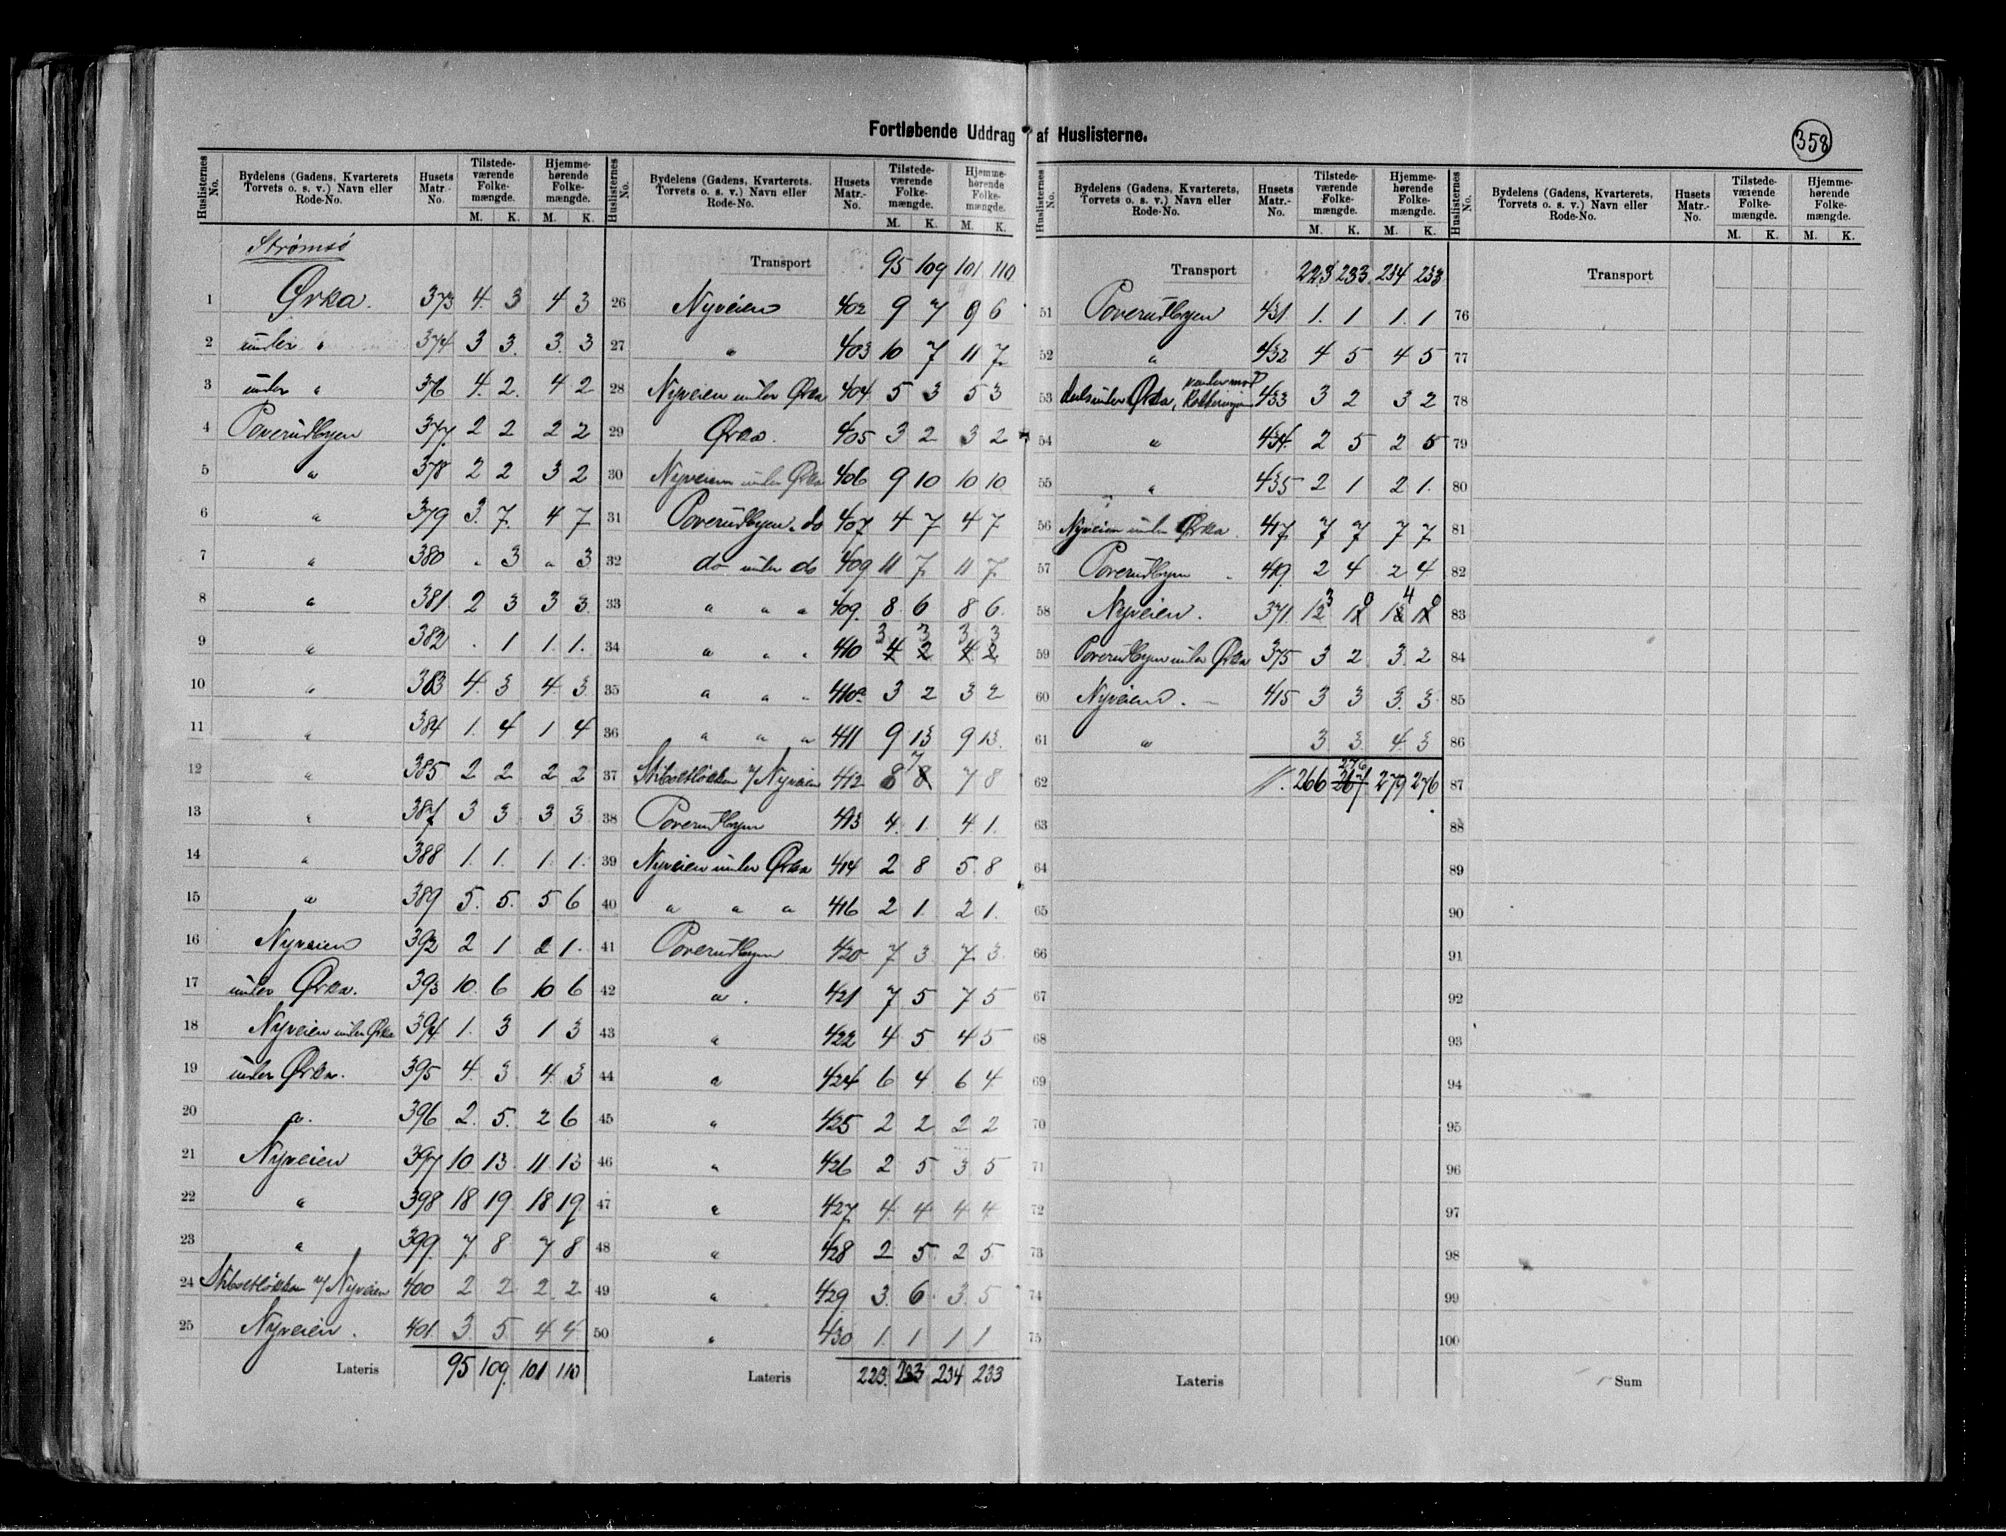 Fortløbende Uddrag af Huslisterne.
358
Huslisternes No. | Bydelens (Gadens, Kvarterets Torvets o. s. v.) Navn eller Rode-No. | Husets Matr.-No. | Tilstedeværende Folkemængde. M. K. | Hjemmehørende Folkemængde. M. K.
Strømsö
1 Ørka. 373 4. 3 4 3
2 under " 374 3 3. 3. 3
3 under " 376 4. 2. 4 2
4 Poverudbyen 377. 2 2 2 2
5 " 378 2 2 3 2
6 " 379 3. 7. 4 7
7 " 380 " 3 " 3
8 " 381. 2 3 3 3
9 " 382 . 1 1. 1.
10 " 383 4. 3 4. 3.
11 " 384 1. 4 1 4
12 " 385 2 2 2 2
13 " 387 3 3 3 3
14 " 388 1. 1. 1. 1.
15 " 389 5. 5. 5 6
16 Nyveien 392 2 1 2 1.
17 under Ørka. 393 10. 6 10 6
18 Nyveien under Ørka 394 1. 3 1 3
19 under Ørka. 395 4. 3 4. 3
20 " 396 2. 5. 2 6
21 Nyveien 397 10 13. 11. 13
22 " 398 18 19 18 19.
23 " 399. 7. 8 7 8
24 Stiboltløkken v/ Nyveien 400 2 2 2 2
25 Nyveien. 401. 3. 5 4 4
Lateris 95 109. 101 110
Huslisternes No. | Bydelens (Gadens, Kvarterets. Torvets o. s. v.) Navn eller Rode-No. | Husets Matr.-No. | Tilstedeværende Folkemængde. M. K. | Hjemmehørende Folkemængde. M. K.
Transport 95 109 101 110
26 Nyveien 402 9 7 9 6
27 " 403 10 7 11 7.
28 Nyveien under Ørka 404 5 3 5 3
29 Ørka. 405 3 2 3 2
30 Nyveien under Ørka 406 9 10 10 10
31 Poverudbyen " do 407 4 7 4 7
32 do under do 409 11 7. 11 7.
33 " " " 409. 8. 6 8 6.
3 3 3 3
34 " " " 410 4 2 4 2
35 " " " 410a 3 2 3 2
36 " " " 411 9 13 9 13.
37 Stiboltløkken v/ Nyveien 412 8 8 7 7 8
38 Poverudbyen 413 4. 1. 4 1.
39 Nyveien under Ørka 414 2 8 5. 8
40 " " " 416 2 1. 2 1.
41 Poverudbyen 420 7 3 7. 3.
42 " 421 7 5 7 5
43 " 422 4 5 4 5
44 " 424 6 4 6 4
45 " 425 2 2 2 2
46 " 426 2 5 3 5
47 " 427. 4. 4 4 4
48 " 428 2 5 2 5
49 " 429. 3. 6. 3. 5
50 " 430 1. 1 1 1
Lateris 223. 233 234 233
Huslisternes No. | Bydelens (Gadens, Kvarterets, Torvets o. s. v.) Navn eller Rode-No. | Husets Matr.-No. | Tilstedeværende Folkemængde. M. K. | Hjemmehørende Folkemængde. M. K.
Transport 223 233 234 233
51 Poverudbyen 431. 1. 1 1. 1
52 " 432 4 5 4 5
53 under Ørka, 433 3 2 3 2
54 " 434. 2 5 2 5
55 " 435 2 1 2 1.
56 Nyveien under Ørka. 417. 7 7 7 7
57 Poverudbyen 419. 2 4 2 4
3 0 4 0
58 Nyveien. 371. 12 12 13 12
59 Poverudbyen under Ørka 375 3 2 3. 2
60 Nyveien. 415 3 3 3. 3
61 " 3 3. 4 3
276
62 266 267 279 276
63
64
65
66
67
68
69
70
71
72
73
74
75
Lateris
Huslisternes No. | Bydelens (Gadens, Kvarterets, Torvets o. s. v.) Navn eller Rode-No. | Husets Matr.-No. | Tilstedeværende Folkemængde. M. K. | Hjemmehørende Folkemængde. M. K.
Transport
76
77
78
79
80
81
82
83
84
85
86
87
88
89
90
91
92
93
94
95
96
97
98
99
100
Sum